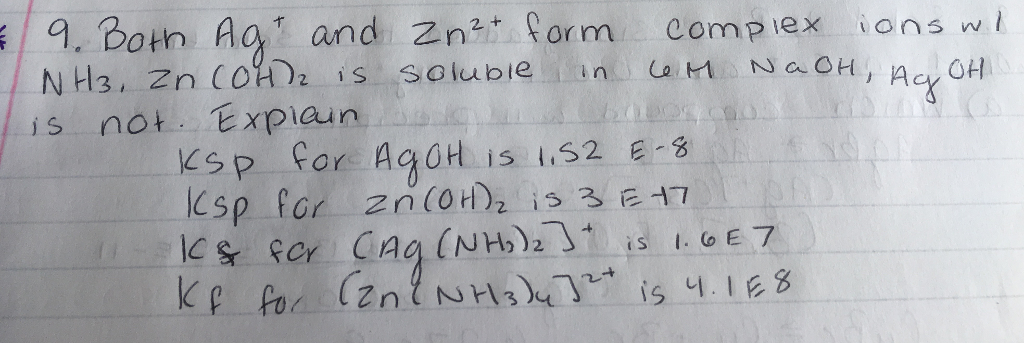 9. Both Ag⁺ and Zn²⁺ form complex ions w/
NH₃, Zn(OH)₂ is soluble in 6M NaOH, AgOH
is not. Explain
Ksp for AgOH is 1.52 E-8
Ksp for Zn(OH)₂ is 3 E-17
Kf for [Ag(NH₃)₂]⁺ is 1.6E7
Kf for [Zn(NH₃)₄]²⁺ is 4.1E8